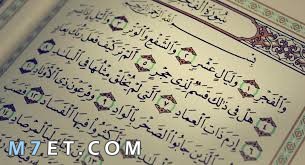 سُورَةُ الْفَجْرِ
وَالْفَجْرِ ١ وَلَيَالٍ عَشْرٍ ٢ وَالشَّفْعِ وَالْوَتْرِ ٣ وَاللَّيْلِ
هَلْ فِي ذَٰلِكَ قَسَمٌ لِّذِي حِجْرٍ ٥ أَلَمْ تَرَ كَيْفَ فَعَلَ رَبُّكَ
إِرَمَ ذَاتِ الْعِمَادِ ٧ الَّتِي لَمْ يُخْلَقْ مِثْلُهَا فِي الْبِلَادِ
الَّذِينَ جَابُوا الصَّخْرَ بِالْوَادِ ٩ وَفِرْعَوْنَ ذِي الْأَوْتَادِ
فَأَكْثَرُوا فِيهَا الْفَسَادَ ١٢ فَصَبَّ
M7ET.COM